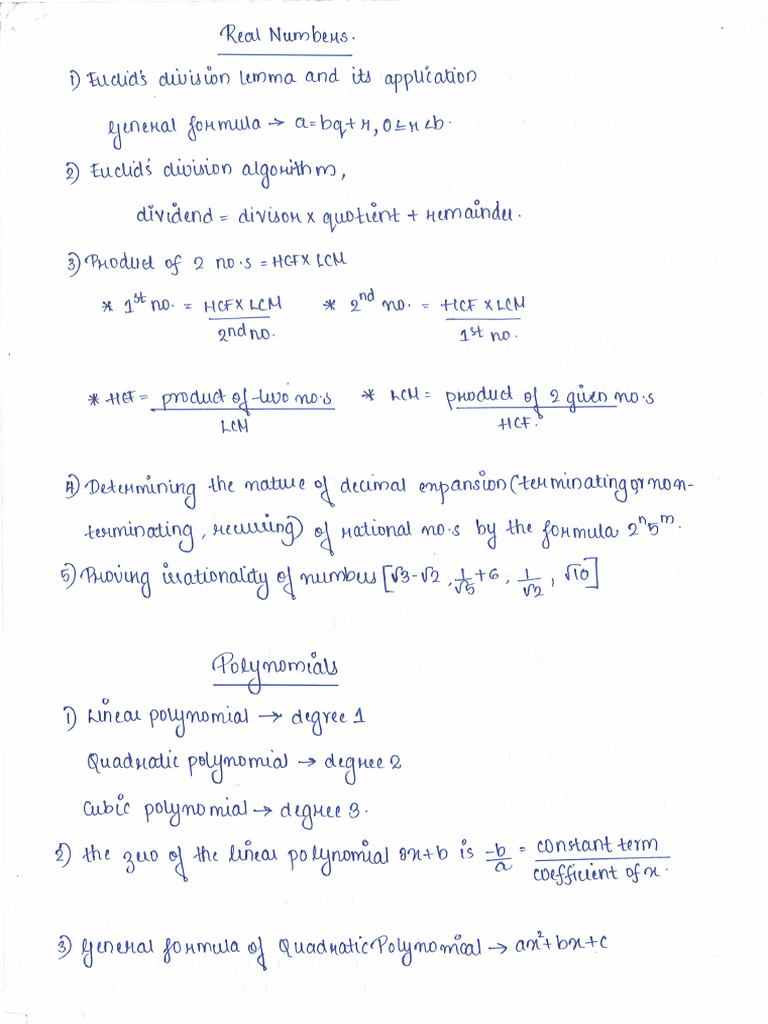 Real Numbers.
1) Euclid's division lemma and its application
general formula → a=bq+r, 0≤r<b.
2) Euclid's division algorithm,
dividend = divisor x quotient + remainder.
3) Product of 2 no.s = HCF X LCM
* 1st no. = HCF X LCM / 2nd no. * 2nd no. = HCF X LCM / 1st no.
* HCF = product of two no.s / LCM * LCM = product of 2 given no.s / HCF.
4) Determining the nature of decimal expansion (terminating or non-
terminating, recurring) of rational no.s by the formula 2ⁿ5ᵐ.
5) Proving irrationality of numbers [√3-√2, 1/√5+6, 1/√2, √10]
Polynomials
1) Linear polynomial → degree 1
Quadratic polynomial → degree 2
Cubic polynomial → degree 3.
2) the zero of the linear polynomial ax+b is -b/a = constant term / coefficient of x.
3) general formula of Quadratic Polynomical → ax²+bx+c